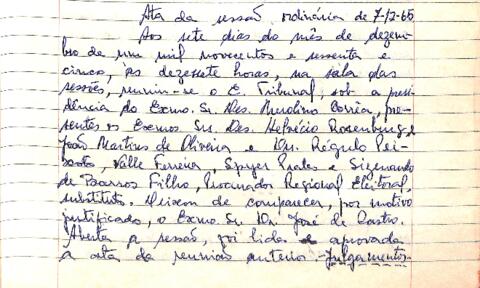 Ata da sessão ordinária de 7-12-65
Aos sete dias do mês de dezem-
bro de um mil novecentos e sessenta e
cinco, às dezessete horas, na sala das
sessões, reuniu-se o E. Tribunal, sob a presi-
dência do Exmo. Sr. Des. Corrêa, pre-
sentes os Exmos. Srs. Des. Rosenburg e
João Martins de Oliveira e Drs. Régulo Pei-
xoto, Valle Ferreira, Spyer Prates e Sizenando
de Barros Filho, Procurador Regional Eleitoral,
substituto. Deixou de comparecer, por motivo
justificado, o Exmo. Sr. Dr. José de Castro.
Aberta a sessão, foi lida e aprovada
a ata da reunião anterior - Julgamentos -